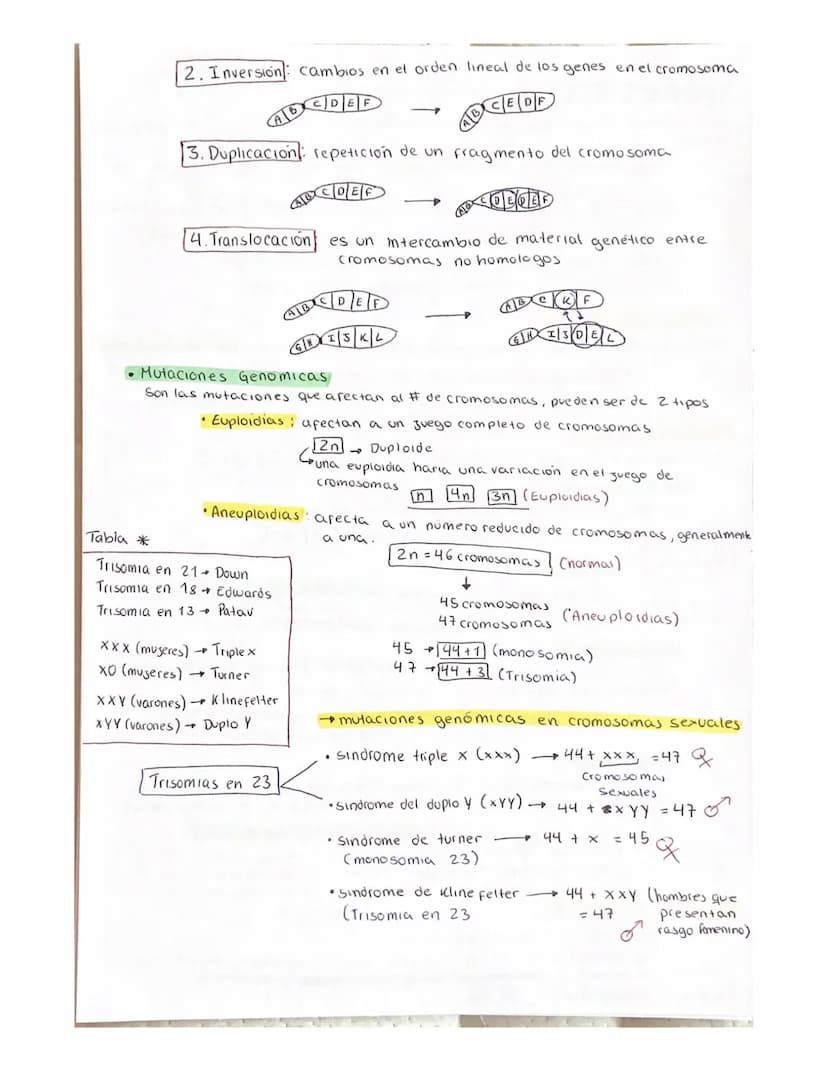 2. Inversión: cambios en el orden lineal de los genes en el cromosoma
A B C D E F → A B C E D F
3. Duplicación: repetición de un fragmento del cromosoma
A B C D E F → A B C D E D E F
4. Translocación es un intercambio de material genético entre
cromosomas no homologos
A B C D E F → A B C K F
G H I J K L G H I J D E L
• Mutaciones Genomicas
Son las mutaciones que afectan al # de cromosomas, pueden ser de 2 tipos
• Euploidias: afectan a un juego completo de cromosomas
2n → Duploide
una euploidia haria una variación en el juego de
cromosomas
n 4n 3n (Euploidias)
• Aneuploidias: afecta a un número reducido de cromosomas, generalment
a una.
2n = 46 cromosomas (normal)
↓
45 cromosomas
47 cromosomas (Aneuploidias)
45 → 44+1 (monosomia)
47 → 44+3 (Trisomia)
Tabla *
Trisomia en 21 → Down
Trisomia en 18 → Edwards
Trisomia en 13 → Patau
XXX (mujeres) → Triple x
XO (mujeres) → Turner
XXY (varones) → Klinefelter
XYY (varones) → Duplo Y
→ mutaciones genómicas en cromosomas sexuales
Trisomias en 23
• sindrome triple x (xxx) → 44+ xxx = 47 ♀
cromosomas
sexuales
• sindrome del duplo Y (xYY) → 44 + xYY = 47 ♂
• sindrome de turner → 44 + x = 45 ♀
(monosomia 23)
• sindrome de Kline felter → 44 + XXY (hombres que
(Trisomia en 23 = 47 presentan
♂ rasgo femenino)